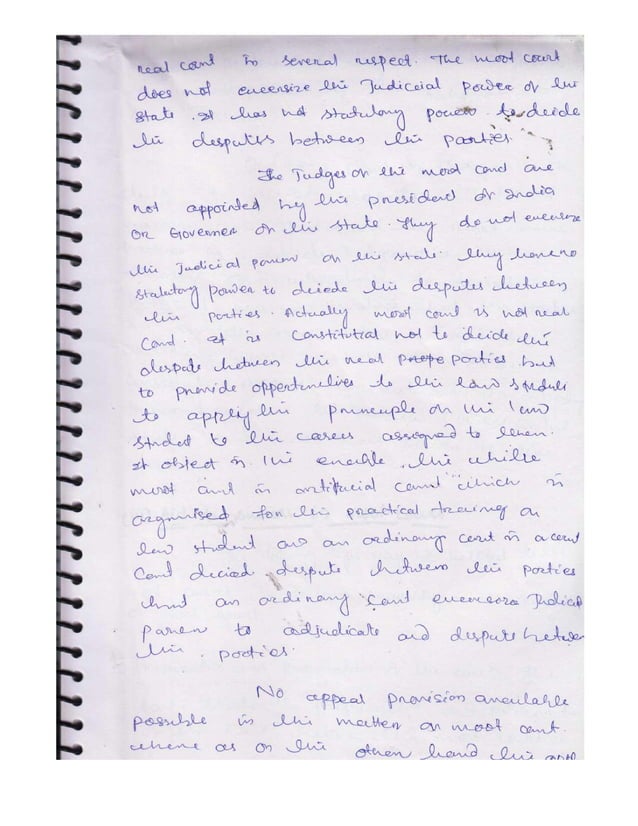 real court in several respect. The moot court
does not excersize the Judicial power of the
State. It has not statutory power to decide
the desputes between the parties.
The Judges of the moot court are
not appointed by the president of India
or Governer of the state. They do not excersize
the Judicial power of the state. they have no
statutory power to decide the desputes between
the parties. Actually moot court is not real
Court. It is not to decide the
despute between the real parties but
to provide to the law
to apply the of the law
to the cases assigned to
It object is the enable, the while
moot court is court which is
organised for the practical training of
law student and an ordinary court is
Court decied dispute between the parties
but an ordinary Court Judicial
power to adjudicate and dispute between
the parties.
No appeal provision
possible in the matter of moot court.
where as on the other hand the